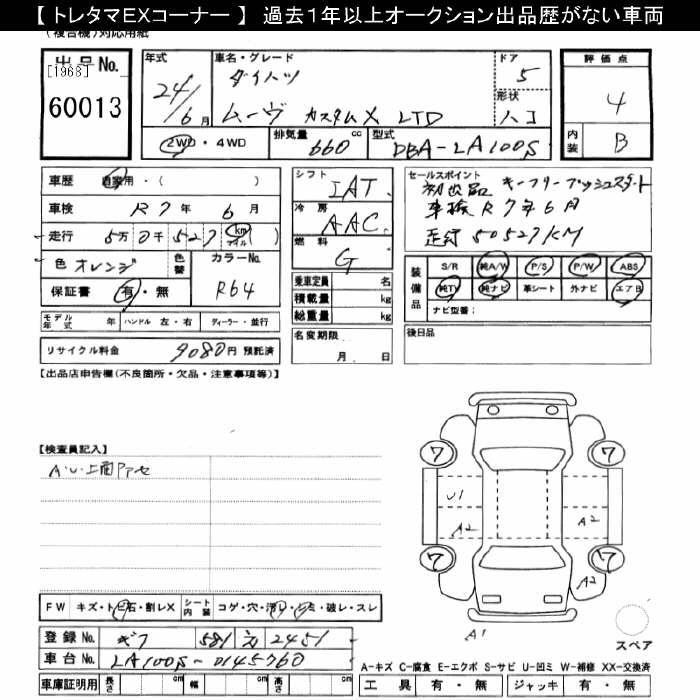 【 トレタマEXコーナー 】 過去1年以上オークション出品歴がない車両
(複合機)対応用紙
出品No.
[1968]
60013
年式
24/6月
車名・グレード
ダイハツ
ムーヴ カスタムX LTD
ドア
5
形状
ハコ
2WD・4WD
排気量 660 cc
型式 DBA-LA100S
評価点
4
内装 B
車歴 自家用・( )
車検 R7年 6月
走行 5万0千527 km マイル ( )
色 オレンジ 色替 カラーNo.
保証書 有・無 R64
モデル年式 年 ハンドル 左・右 ディーラー・並行
リサイクル料金 9080円 預託済
シフト IAT
冷房 AAC
燃料 G
乗車定員 名
積載量 kg
総重量 kg
名変期限
月 日
セールスポイント
キーフリープッシュスタート
車検R7年6月
走行50527KM
装備品
S/R 純A/W P/S P/W ABS
純TV 純ナビ 革シート 外ナビ エアB
ナビ型番:
後日品
【出品店申告欄(不良箇所・欠品・注意事項等)】
【検査員記入】
A・U・上面アセ
7 7
U1
A2 A2
7 7
A2
A1
スペア
FW キズ・トビ石・割レX シート内装 コゲ・穴・汚レ・シミ・破レ・スレ
登録No. ギフ 581 2451
車台No. LA100S-0145760
車庫証明用 長さ cm 幅 cm 高さ cm
A-キズ C-腐食 E-エクボ S-サビ U-凹ミ W-補修 XX-交換済
工具 有・無 ジャッキ 有・無